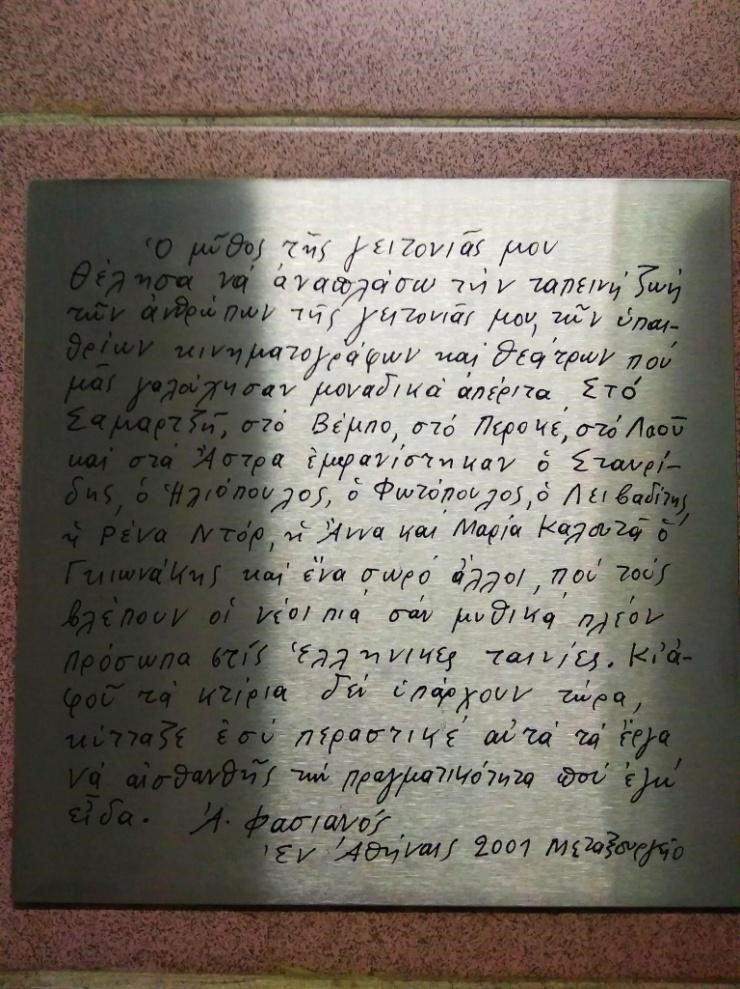 Ὁ μῦθος τῆς γειτονιᾶς μου
Θέλησα νά ἀναπλάσω τήν ταπεινή ζωή
τῶν ἀνθρώπων τῆς γειτονιᾶς μου, τῶν ὑπαι-
θρίων κινηματογράφων καί θεάτρων πού
μᾶς γαλούχησαν μοναδικά ἀπέριτα Στό
Σαμαρτζῆ, στό Βέμπο, στό Περοκέ, στό Λαοῦ
καί στά Ἄστρα ἐμφανίστηκαν ὁ Σταυρί-
δης, ὁ Ἡλιόπουλος, ὁ Φωτόπουλος, ὁ Λειβαδίτης,
ἡ Ρένα Ντόρ, ἡ Ἄννα καί Μαρία Καλουτά ὁ
Γκιωνάκης καί ἕνα σωρό ἄλλοι, πού τούς
βλέπουν οἱ νέοι πιά σάν μυθικά πλέον
πρόσωπα στίς Ἑλληνικες ταινίες. Κι ἀ-
φοῦ τά κτίρια δέν ὑπάρχουν τώρα,
κύτταξε ἐσύ περαστικέ αὐτά τά ἔργα
νά αἰσθανθῆς τήν πραγματικότητα πού ἐγώ
εἶδα. Ἀ. Φασιανός
Ἐν Ἀθήναις 2001 Μεταξουργεῖο